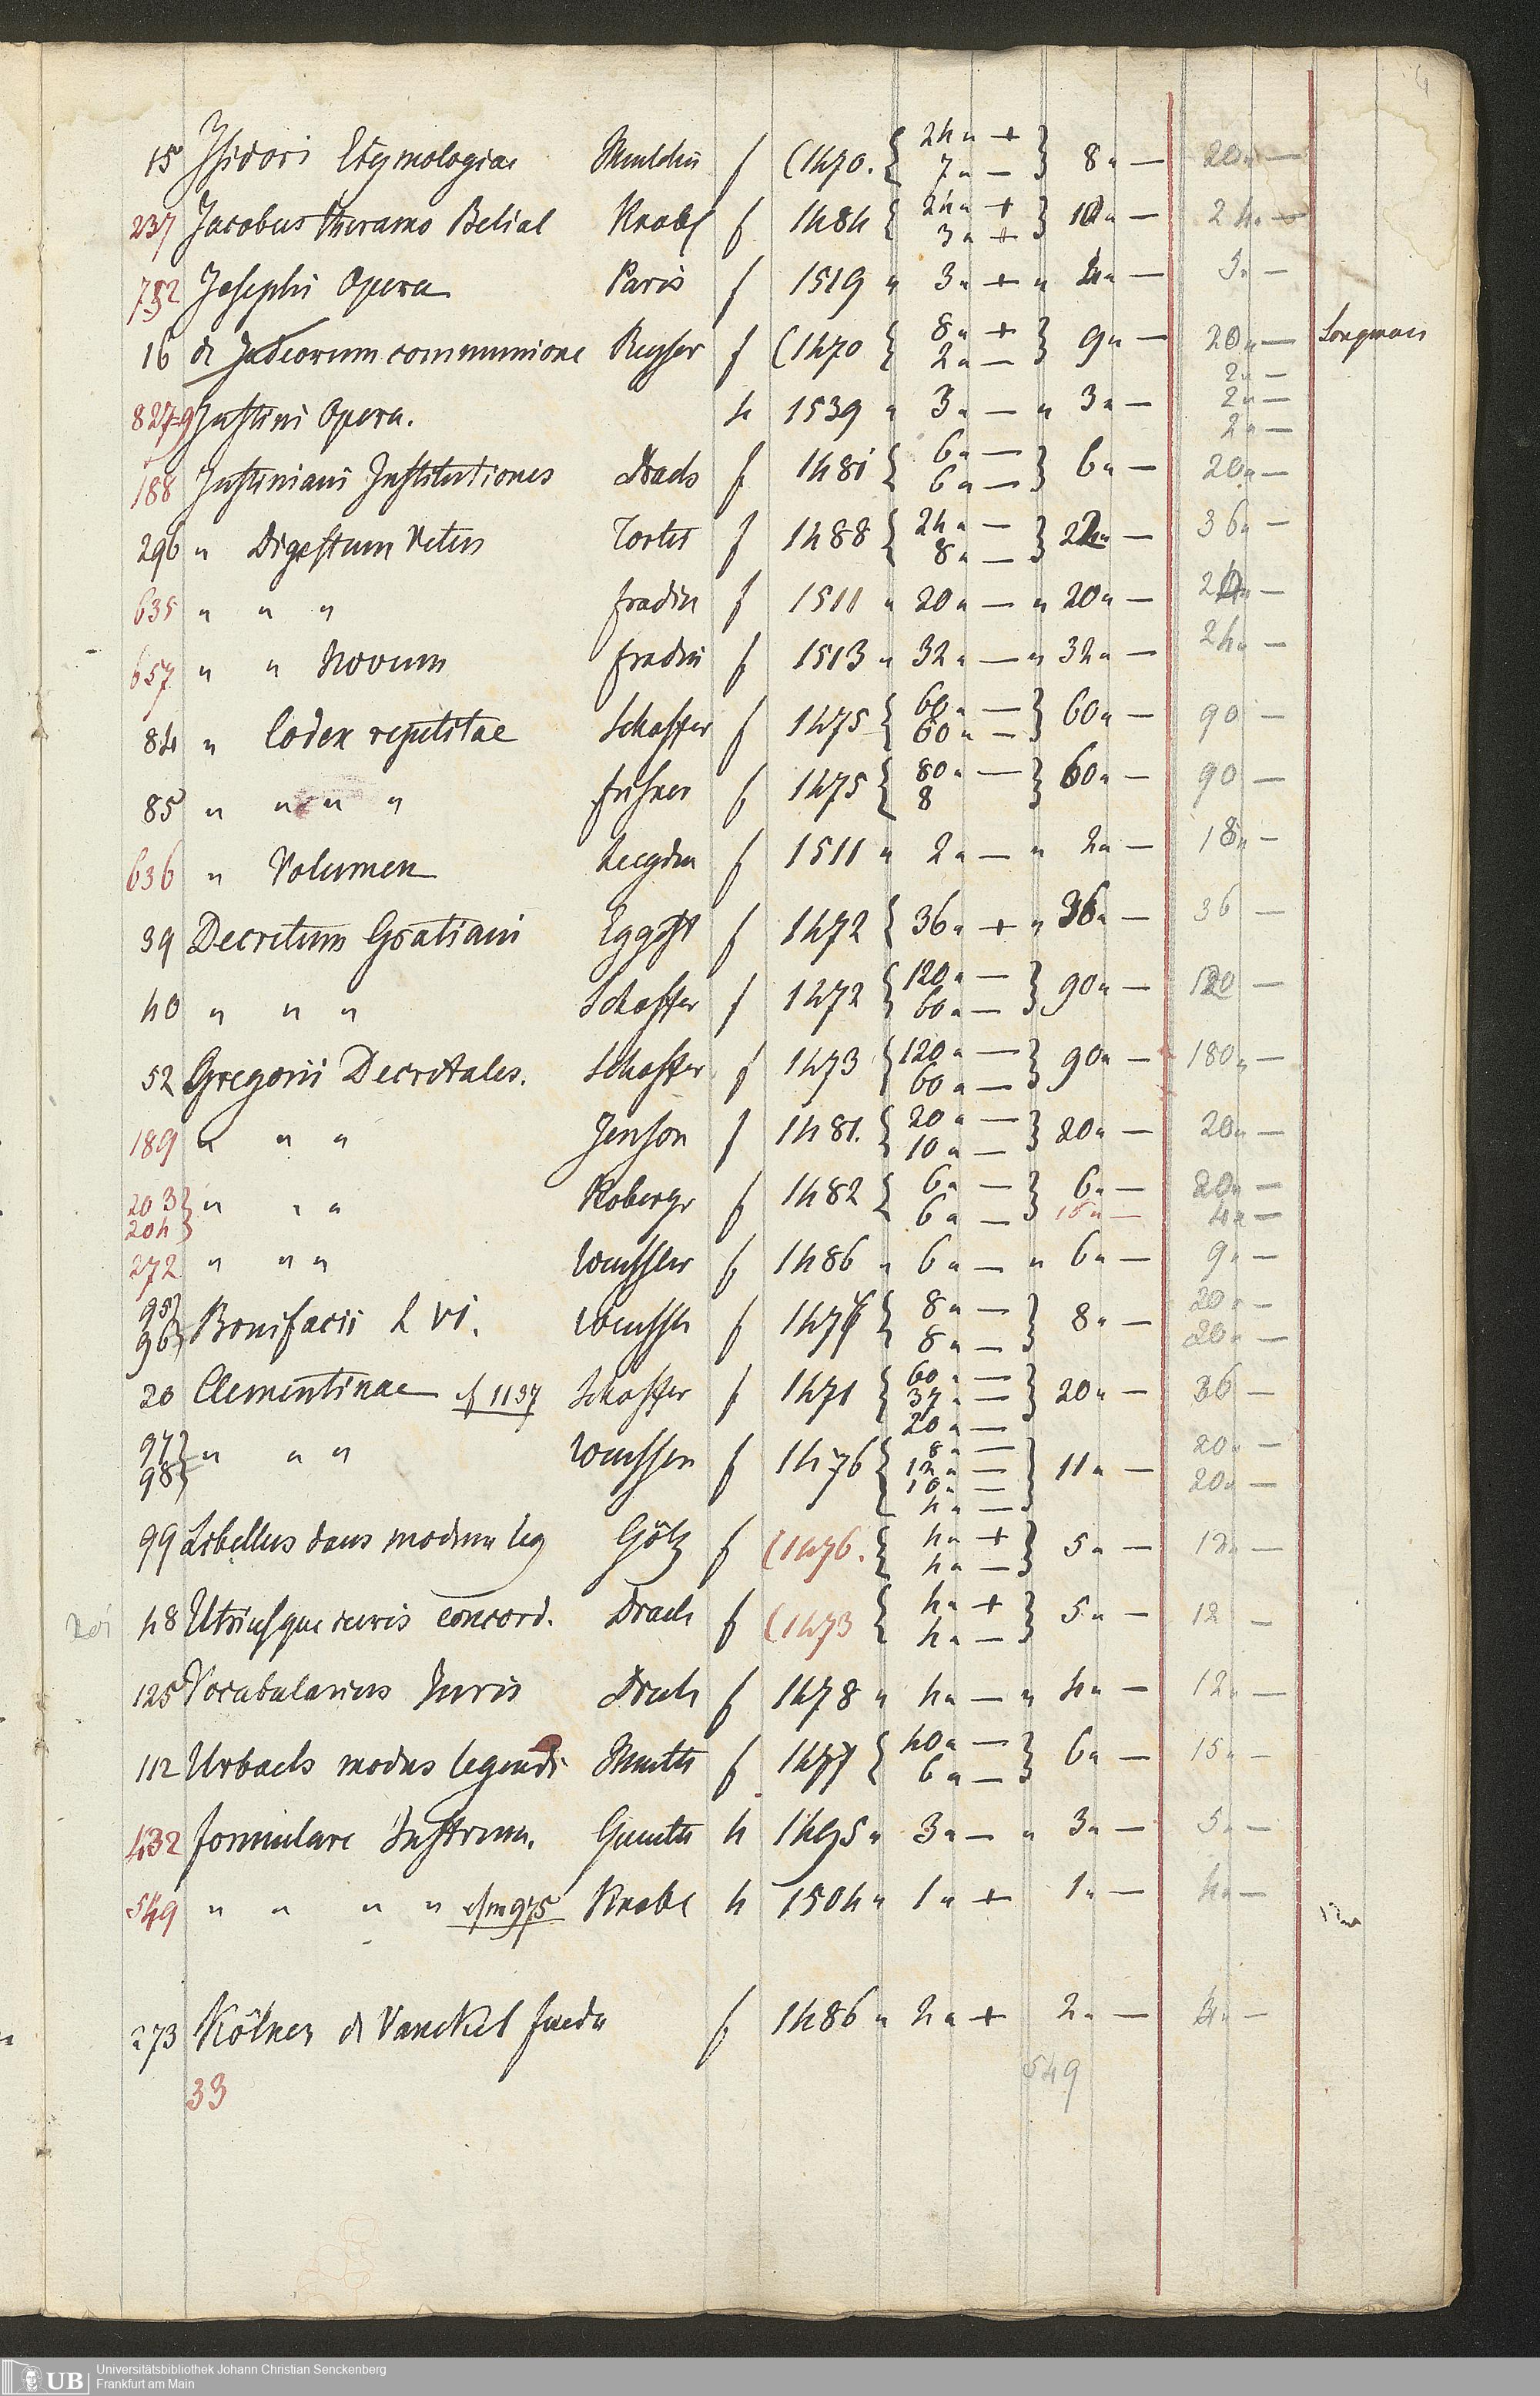 4
15 Isidori Etymologiae Mentelin f (1470. { 24 " + 7 " — } 8 " — 20 " —
237 Jacobus Theramo Belial Knobl f 1484 { 24 " + 3 " + } 12 " — 24 " —
752 Josephi Opera Paris f 1519 " 3 " + " 4 " — 5 " —
16 de Judeorum communione Reyser f (1470 { 8 " + 2 " — } 9 " — 20 " — Longman
827-9 Justini Opera. 4 1539 " 3 " — " 3 " — 2 " — 2 " — 2 " —
188 Justiniani Institutiones Drach f 1481 { 6 " — 6 " — } 6 " — 20 " —
296 " Digestum Vetus Tortis f 1488 { 24 " — 8 " — } 22 " — 36 " —
635 " " " Fradin f 1511 " 20 " — " 20 " — 24 " —
657 " " Novum Fradin f 1513 " 32 " — " 32 " — 24 " —
84 " Codex repetitae Schoffer f 1475 { 60 " — 60 " — } 60 " — 90 —
85 " " " " Frisner f 1475 { 80 " — 8 } 60 " — 90 —
636 " Volumen Lugdun f 1511 " 2 " — " 2 " — 18 " —
39 Decretum Gratiani Eggest f 1472 { 36 " + " 36 " — 36 —
40 " " " Schoffer f 1472 { 120 " — 60 " — } 90 " — 120 —
52 Gregorii Decretales. Schoffer f 1473 { 120 " — 60 " — } 90 " — 180 " —
189 " " " Jenson f 1481. { 20 " — 10 " — } 20 " — 20 " —
203 } 204 } " " " Koberger f 1482 { 6 " — 6 " — } 6 " — 15 " — 20 " — 4 " —
272 " " " Wenssler f 1486 " 6 " — " 6 " — 9 " —
95 } 96 } Bonifacii L VI. Wenssler f 1476 { 8 " — 8 " — } 8 " — 20 " — 20 " —
20 Clementinae cf 1137 Schoffer f 1471 { 60 " — 37 " — 20 " — } 20 " — 36 —
97 } 98 } " " " Wenssler f 1476 { 8 " — 12 " — 10 " — 4 " — } 11 " — 20 " — 20 " —
99 Libellus dans modum leg Götz f (1476. { 4 " + 4 " — } 5 " — 12 " —
48 Utriusque iuris concord. Drach f (1473 { 4 " + 4 " — } 5 " — 12 —
125 Vocabularius Juris Drach f 1478 " 4 " — " 4 " — 12 " —
112 Urbach modus legendi Mentel f 1477 { 40 " — 6 " — } 6 " — 15 " —
432 Formulare Instrum. Guentli 4 1495 " 3 " — " 3 " — 5 " —
549 " " " " cf m 975 Knobl 4 1504 " 1 " + 1 " — 4 " —
273 Kölner de Vanckel Feuda f 1486 " 2 " + 2 " — 4 " —
33 549
UB Universitätsbibliothek Johann Christian Senckenberg
Frankfurt am Main